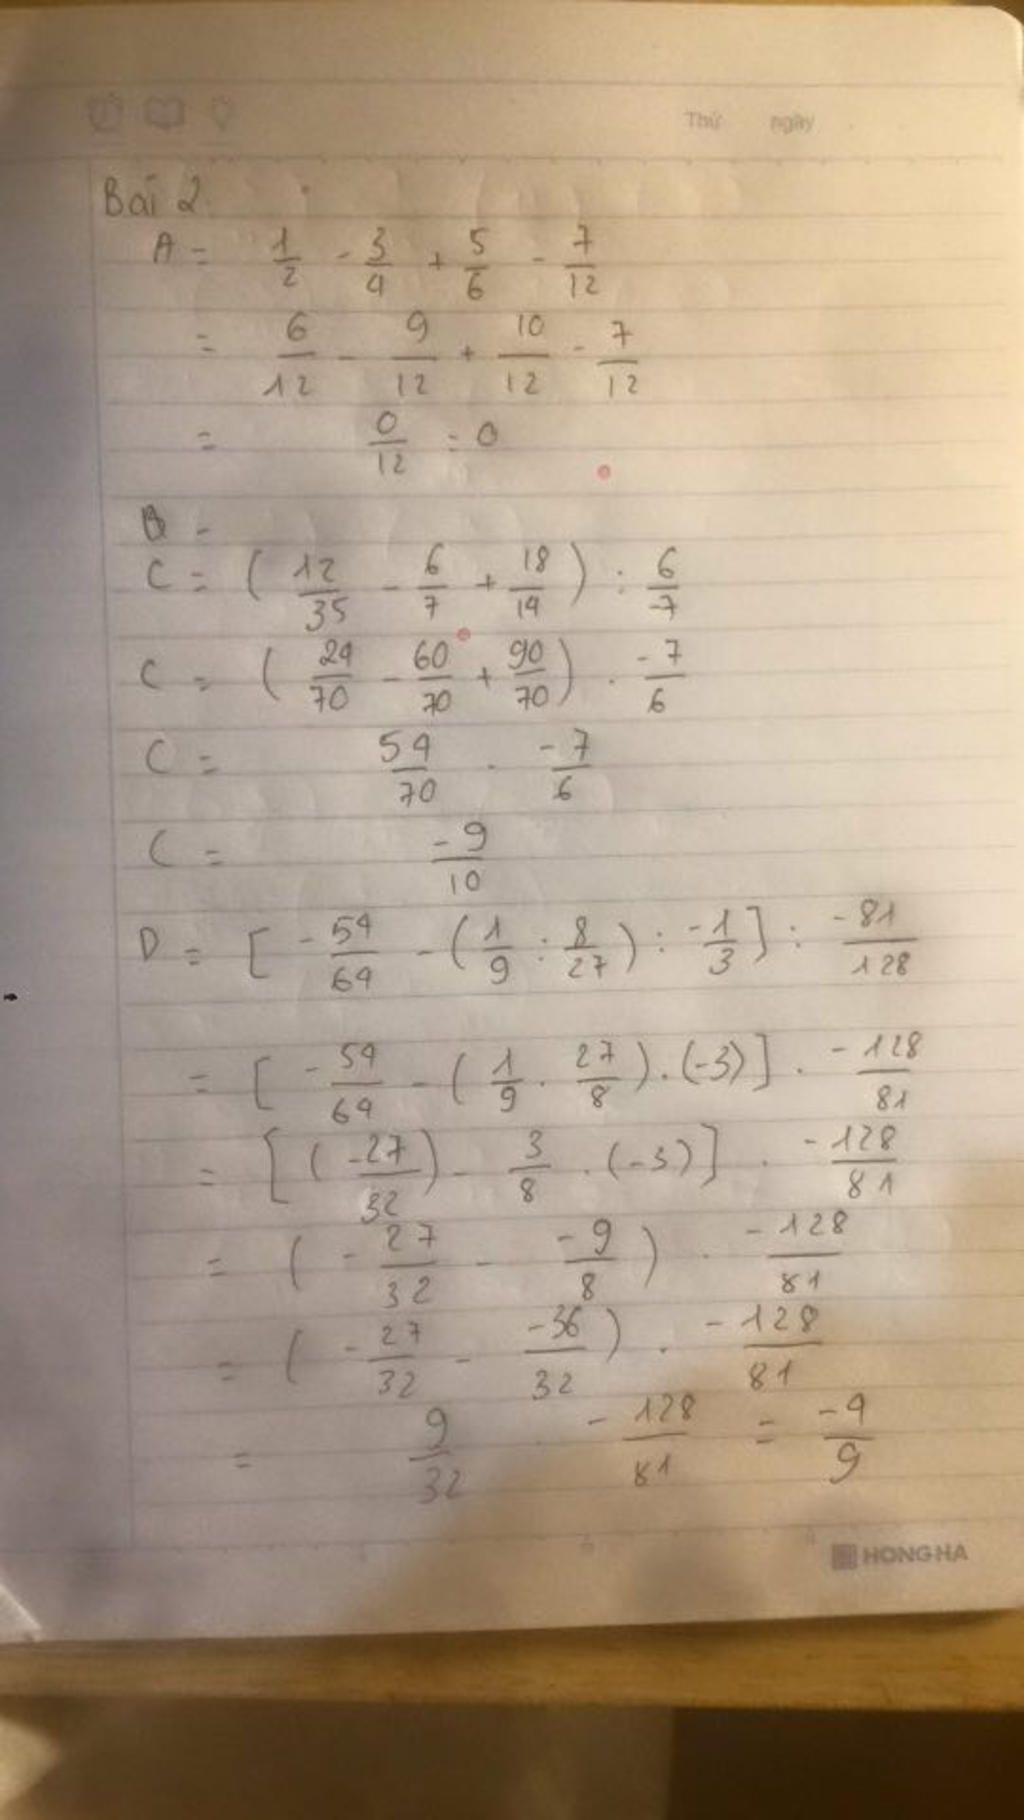 Thứ ngày
Bài 2
A = 1/2 - 3/4 + 5/6 - 7/12
= 6/12 - 9/12 + 10/12 - 7/12
= 0/12 = 0
B =
C = ( 12/35 - 6/7 + 18/14 ) : 6/-7
C = ( 24/70 - 60/70 + 90/70 ) . -7/6
C = 54/70 . -7/6
C = -9/10
D = [ -54/64 - ( 1/9 : 8/27 ) : -1/3 ] : -81/128
= [ -54/64 - ( 1/9 . 27/8 ) . (-3) ] . -128/81
= [ ( -27/32 ) - 3/8 . (-3) ] . -128/81
= ( -27/32 - -9/8 ) . -128/81
= ( -27/32 - -36/32 ) . -128/81
= 9/32 . -128/81 = -4/9
HONG HA